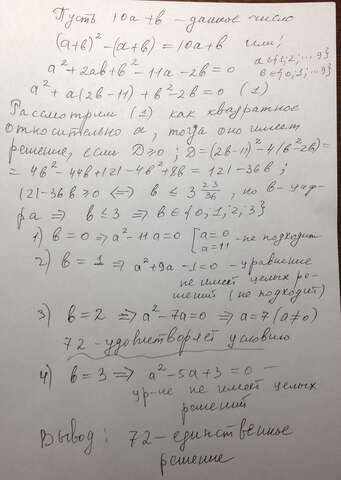 Пусть 10a+b – данное число
(a+b)² – (a+b) = 10a+b или;
a² + 2ab + b² – 11a – 2b = 0 a∈{1,2; …9}
b∈{0,1; …9}
a² + a(2b–11) + b² – 2b = 0 (1)
Рассмотрим (1) как квадратное
относительно a, тогда оно имеет
решение, если D≥0; D=(2b–11)²–4(b²–2b)=
= 4b² – 44b + 121 – 4b² + 8b = 121 – 36b;
121 – 36b ≥ 0 ⟺ b ≤ 3 23/36, но b – циф-
ра ⇒ b ≤ 3 ⇒ b∈{0;1;2;3}
1) b = 0 ⇒ a² – 11a = 0 [a=0 a=11 – не подходит
2) b = 1 ⇒ a² + 9a – 1 = 0 – уравнение
не имеет целых ре-
шений (не подходит)
3) b = 2 ⇒ a² – 7a = 0 ⇒ a = 7 (a≠0)
72 – удовлетворяет условию
4) b = 3 ⇒ a² – 5a + 3 = 0 –
ур-ие не имеет целых
решений
Вывод: 72 – единственное
решение